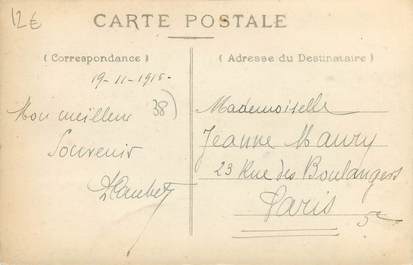 12€
CARTE POSTALE
( Correspondance )
19-11-1915-
38)
Mon meilleur
Souvenir
( Adresse du Destinataire )
Mademoiselle
Jeanne Maury
23 Rue des Boulangers
Paris 5e